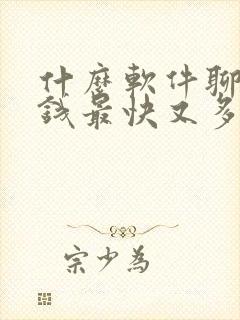 什麼軟件聊
錢最快又多
宗少為